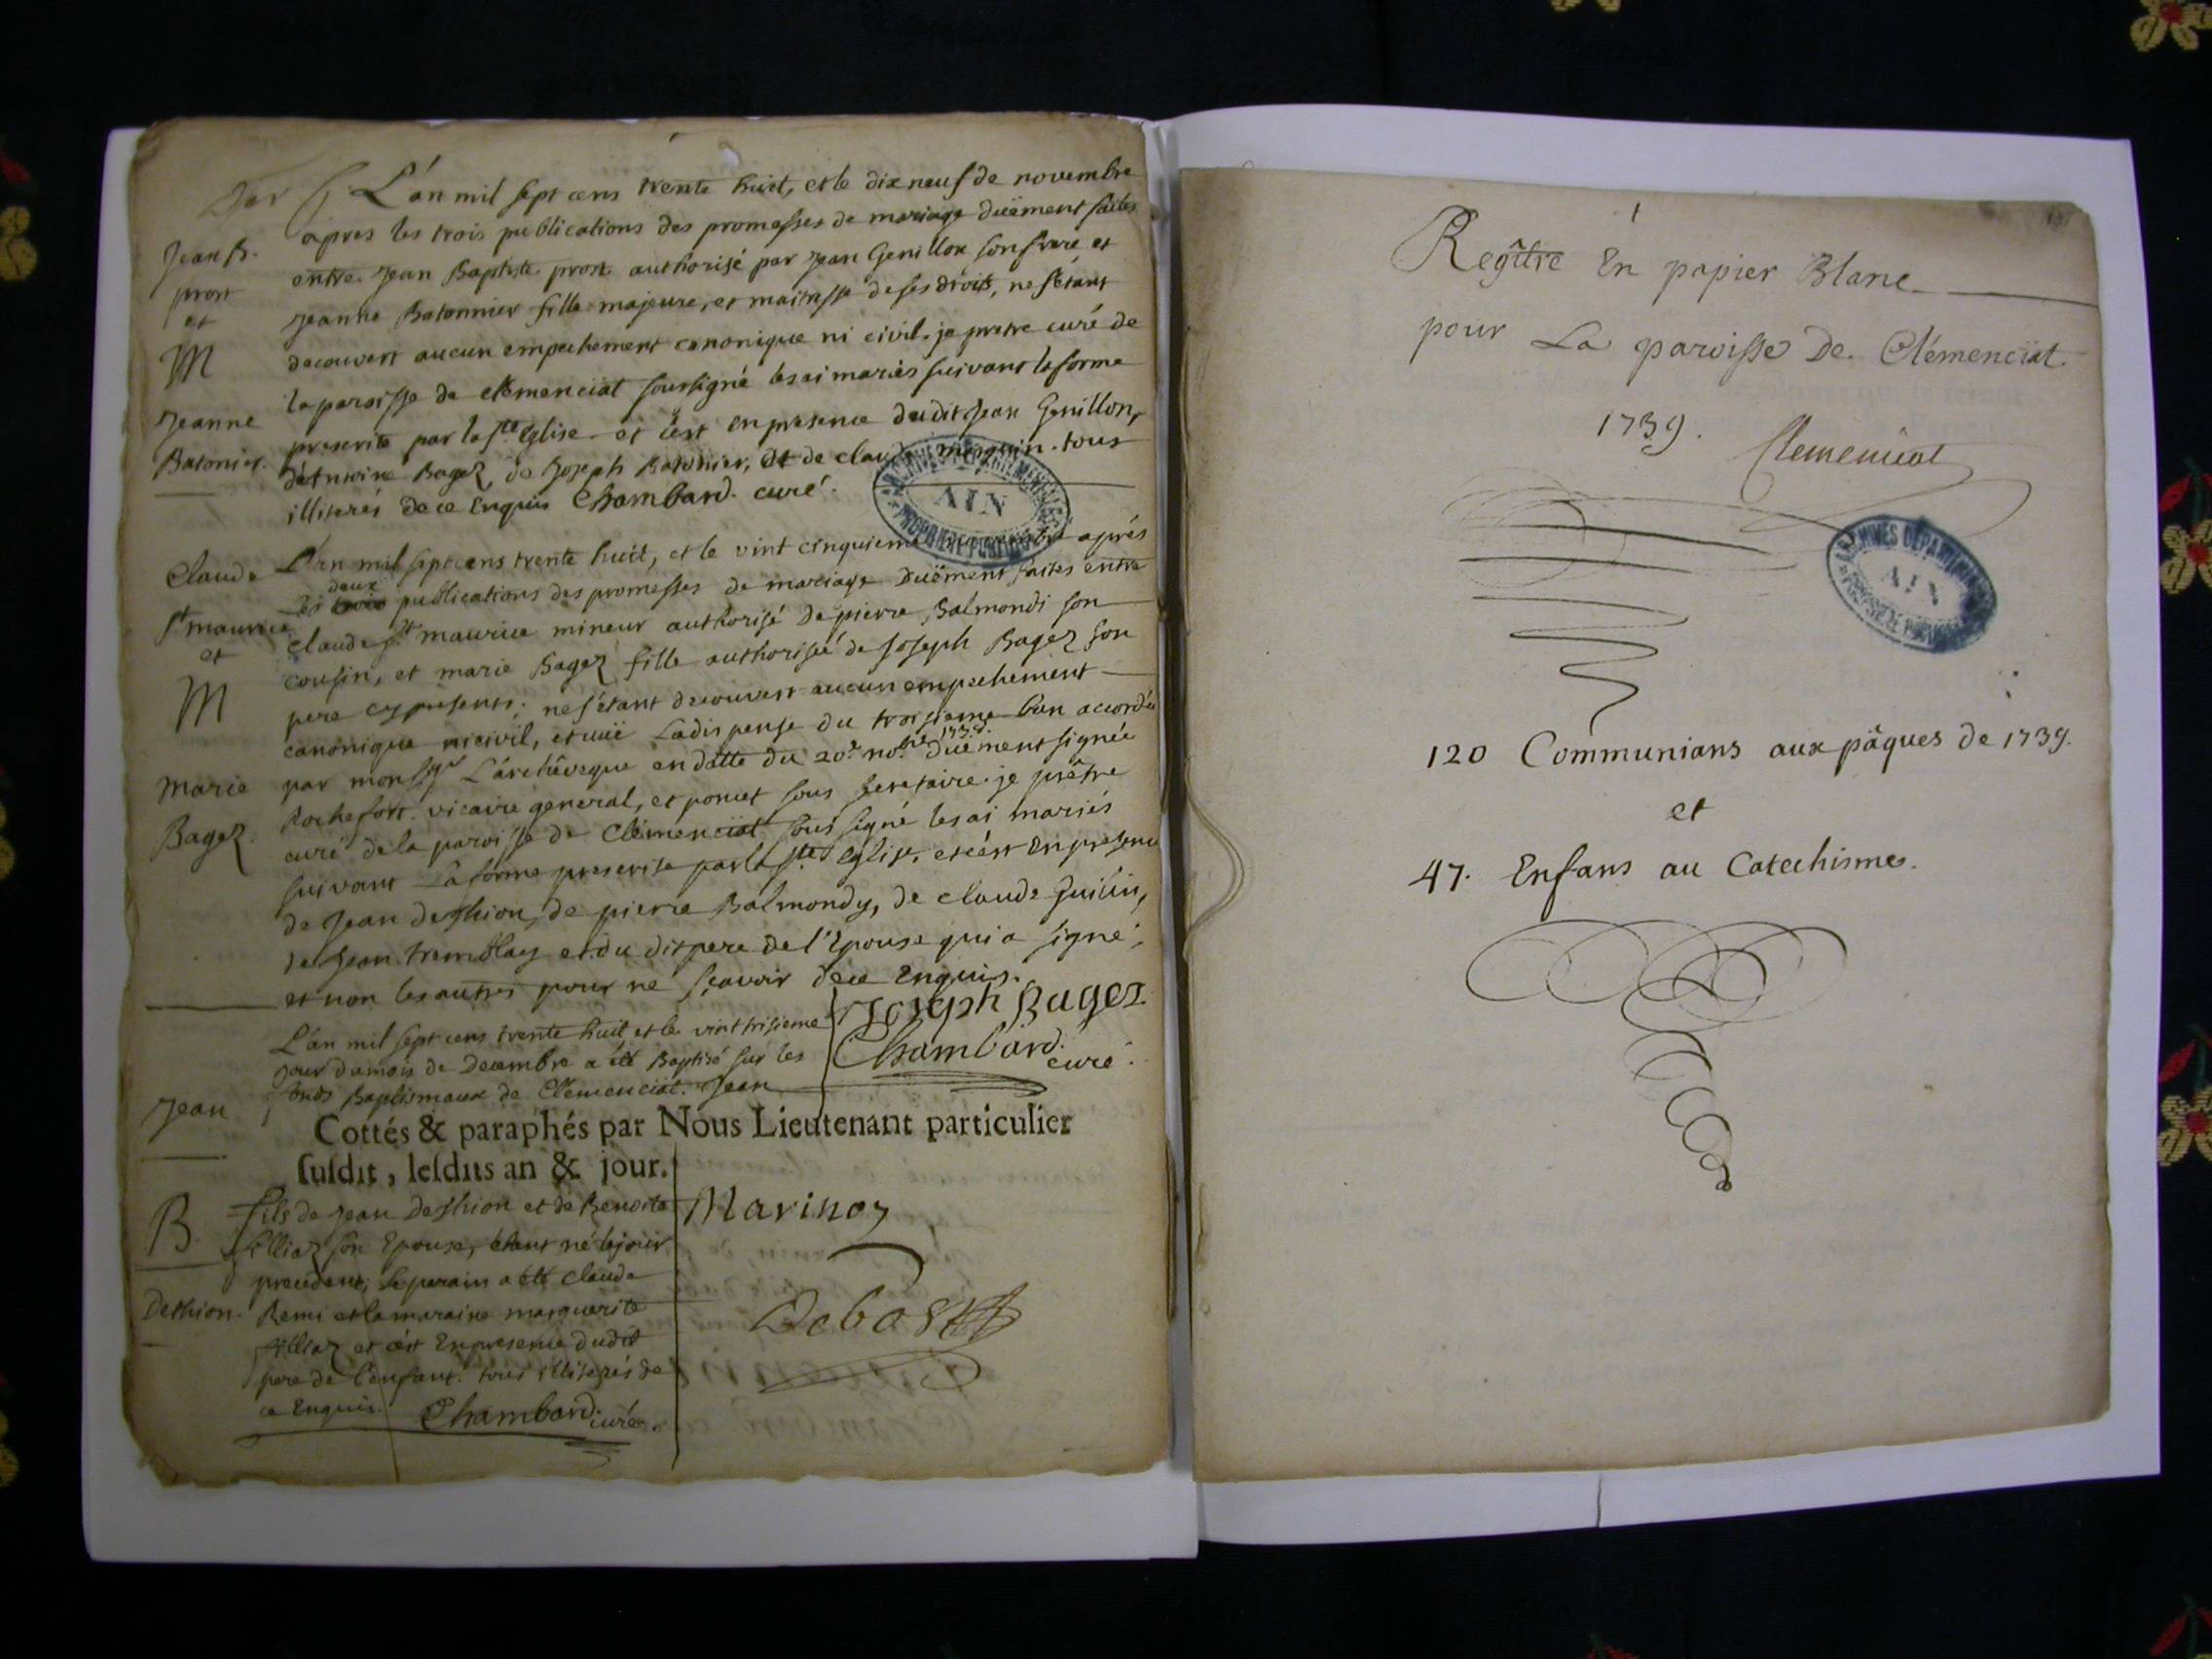 L'an mil sept cens trente huit, et le dix neuf de novembre
apres les trois publications des promesses de mariage duëment faites
entre Jean Baptiste prost authorisé par Jean Genillon son frere et
Jeanne Batonnier fille majeure, et maitresse de ses droits, ne s'étant
decouvert aucun empechement canonique ni civil. je pretre curé de
la paroisse de clemenciat soussigné les ai mariés suivant la forme
prescrite par la Ste Eglise. et c'est en presence dudit Jean Genillon,
d'Antoine Bagez, de Joseph Batonier, et de claude tous
illiterés de ce Enquis Chambard. curé.
Jean B.
prost
et
M
Jeanne
Batonier.
L'an mil sept cens trente huit, et le vint cinquieme après
les deux publications des promesses de mariage duëment faites entre
claude St maurice mineur authorisé de pierre Balmondi son
cousin, et marie Bagez fille authorisée de Joseph Bagez son
pere cy presents; ne s'étant decouvert aucun empechement
canonique ni civil, et vuë la dispense du troisieme ban accordée
par monsgr L'archêveque en datte du 20e. nobre 1738. duëment signée
Rochefort. vicaire general, et poncet sous secretaire. je prêtre
curé de la paroisse de Clémenciat sous signé les ai mariés
suivant La forme prescrite par la Ste Eglise, et c'est En presence
de Jean dethion, de pierre Balmondy, de claude Guilin,
de Jean tremblay et du dit pere de l'Epouse qui a signé,
et non les autres pour ne sçavoir de ce Enquis.
Joseph Bagez
Chambard.
curé.
Claude
St maurice
et
M
Marie
Bagez.
L'an mil sept cens trente huit, et le vint trisieme
jour du mois de Decembre a été Baptisé sur les
fonds Baptismaux de Clemenciat. Jean
Jean
Cottés & paraphés par Nous Lieutenant particulier
susdit, lesdits an & jour.
B.
Dethion.
fils de Jean Dethion et de Benoite
Alliaz son Epouse, étant né le jour
precedent; le parain a été Claude
Remi et la maraine marguerite
Alliaz et c'est En presence dudit
pere de l'enfant. tous illiterés de
ce Enquis. Chambard. curé.
Marinoz
AIN
Regître En papier Blanc
pour La paroisse De Clémenciat.
1739.
Clemenciat
ARCHIVES DEPARTEMENTALES
AIN
120 Communians aux pâques de 1739.
et
47. Enfans au Catechisme.